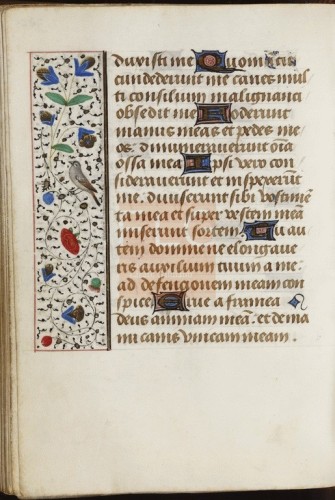 duxisti me Quoniam cir
cundederunt me canes mul
ti consilium malignanti
obsedit me Foderunt
manus meas et pedes me
os: dinumerauerunt oīa
ossa mea Ipsi vero con
siderauerunt et inspexerūt
me: diuiserunt sibi vestimē
ta mea et super vestem meā
miserunt sortem Tu au
tem domine ne elongaue
ris auxilium tuum a me
ad defensionem meam con
spice Erue a framea
deus animam meā: et de ma
nu canis vnicam meam.